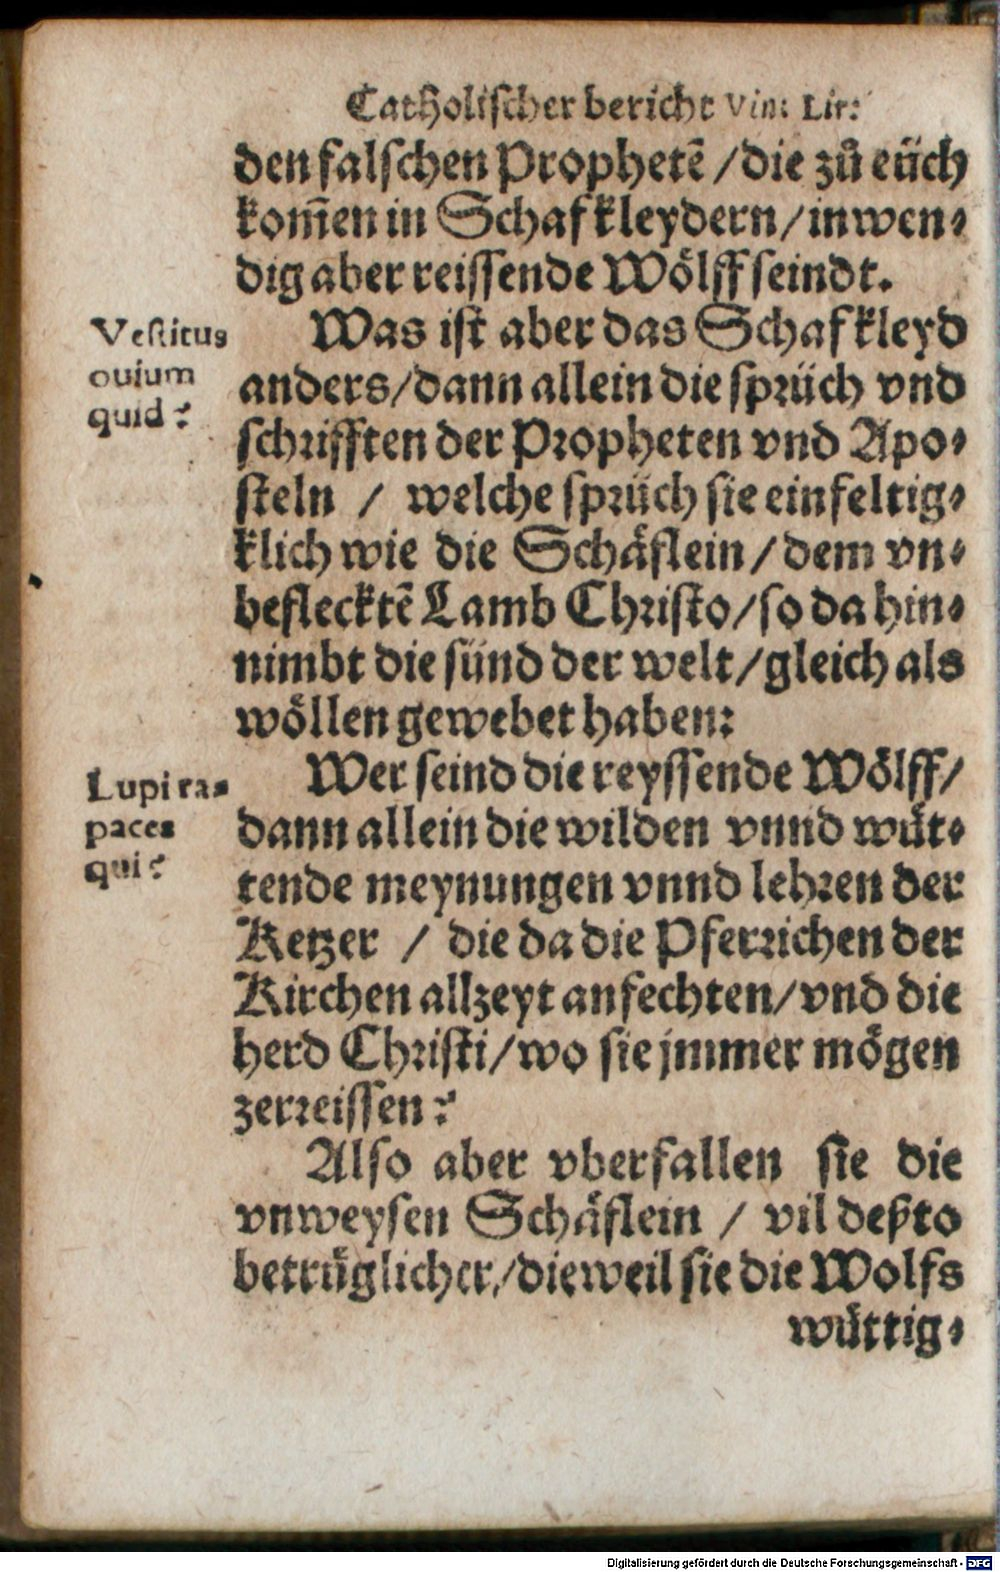 Catholischer bericht Vin: Lir:
den falschen Prophetē / die zů eüch
kom̄en in Schafkleydern / inwen⸗
dig aber reissende Wölff seindt.
Vestitus
ouium
quid?
Was ist aber das Schafkleyd
anders / dann allein die sprüch vnd
schrifften der Propheten vnd Apo⸗
steln / welche sprüch sie einfeltig⸗
klich wie die Schäflein / dem vn⸗
beflecktē Lamb Christo / so da hin⸗
nimbt die sünd der welt / gleich als
wöllen gewebet haben:
Lupi ra⸗
paces
qui?
Wer seind die reyssende Wölff /
dann allein die wilden vnnd wüt⸗
tende meynungen vnnd lehren der
Ketzer / die da die Pferrichen der
Kirchen allzeyt anfechten / vnd die
herd Christi / wo sie jmmer mögen
zerreissen?
Also aber vberfallen sie die
vnweysen Schäflein / vil deßto
betrüglicher / dieweil sie die Wolfs
wüttig⸗
Digitalisierung gefördert durch die Deutsche Forschungsgemeinschaft - DFG